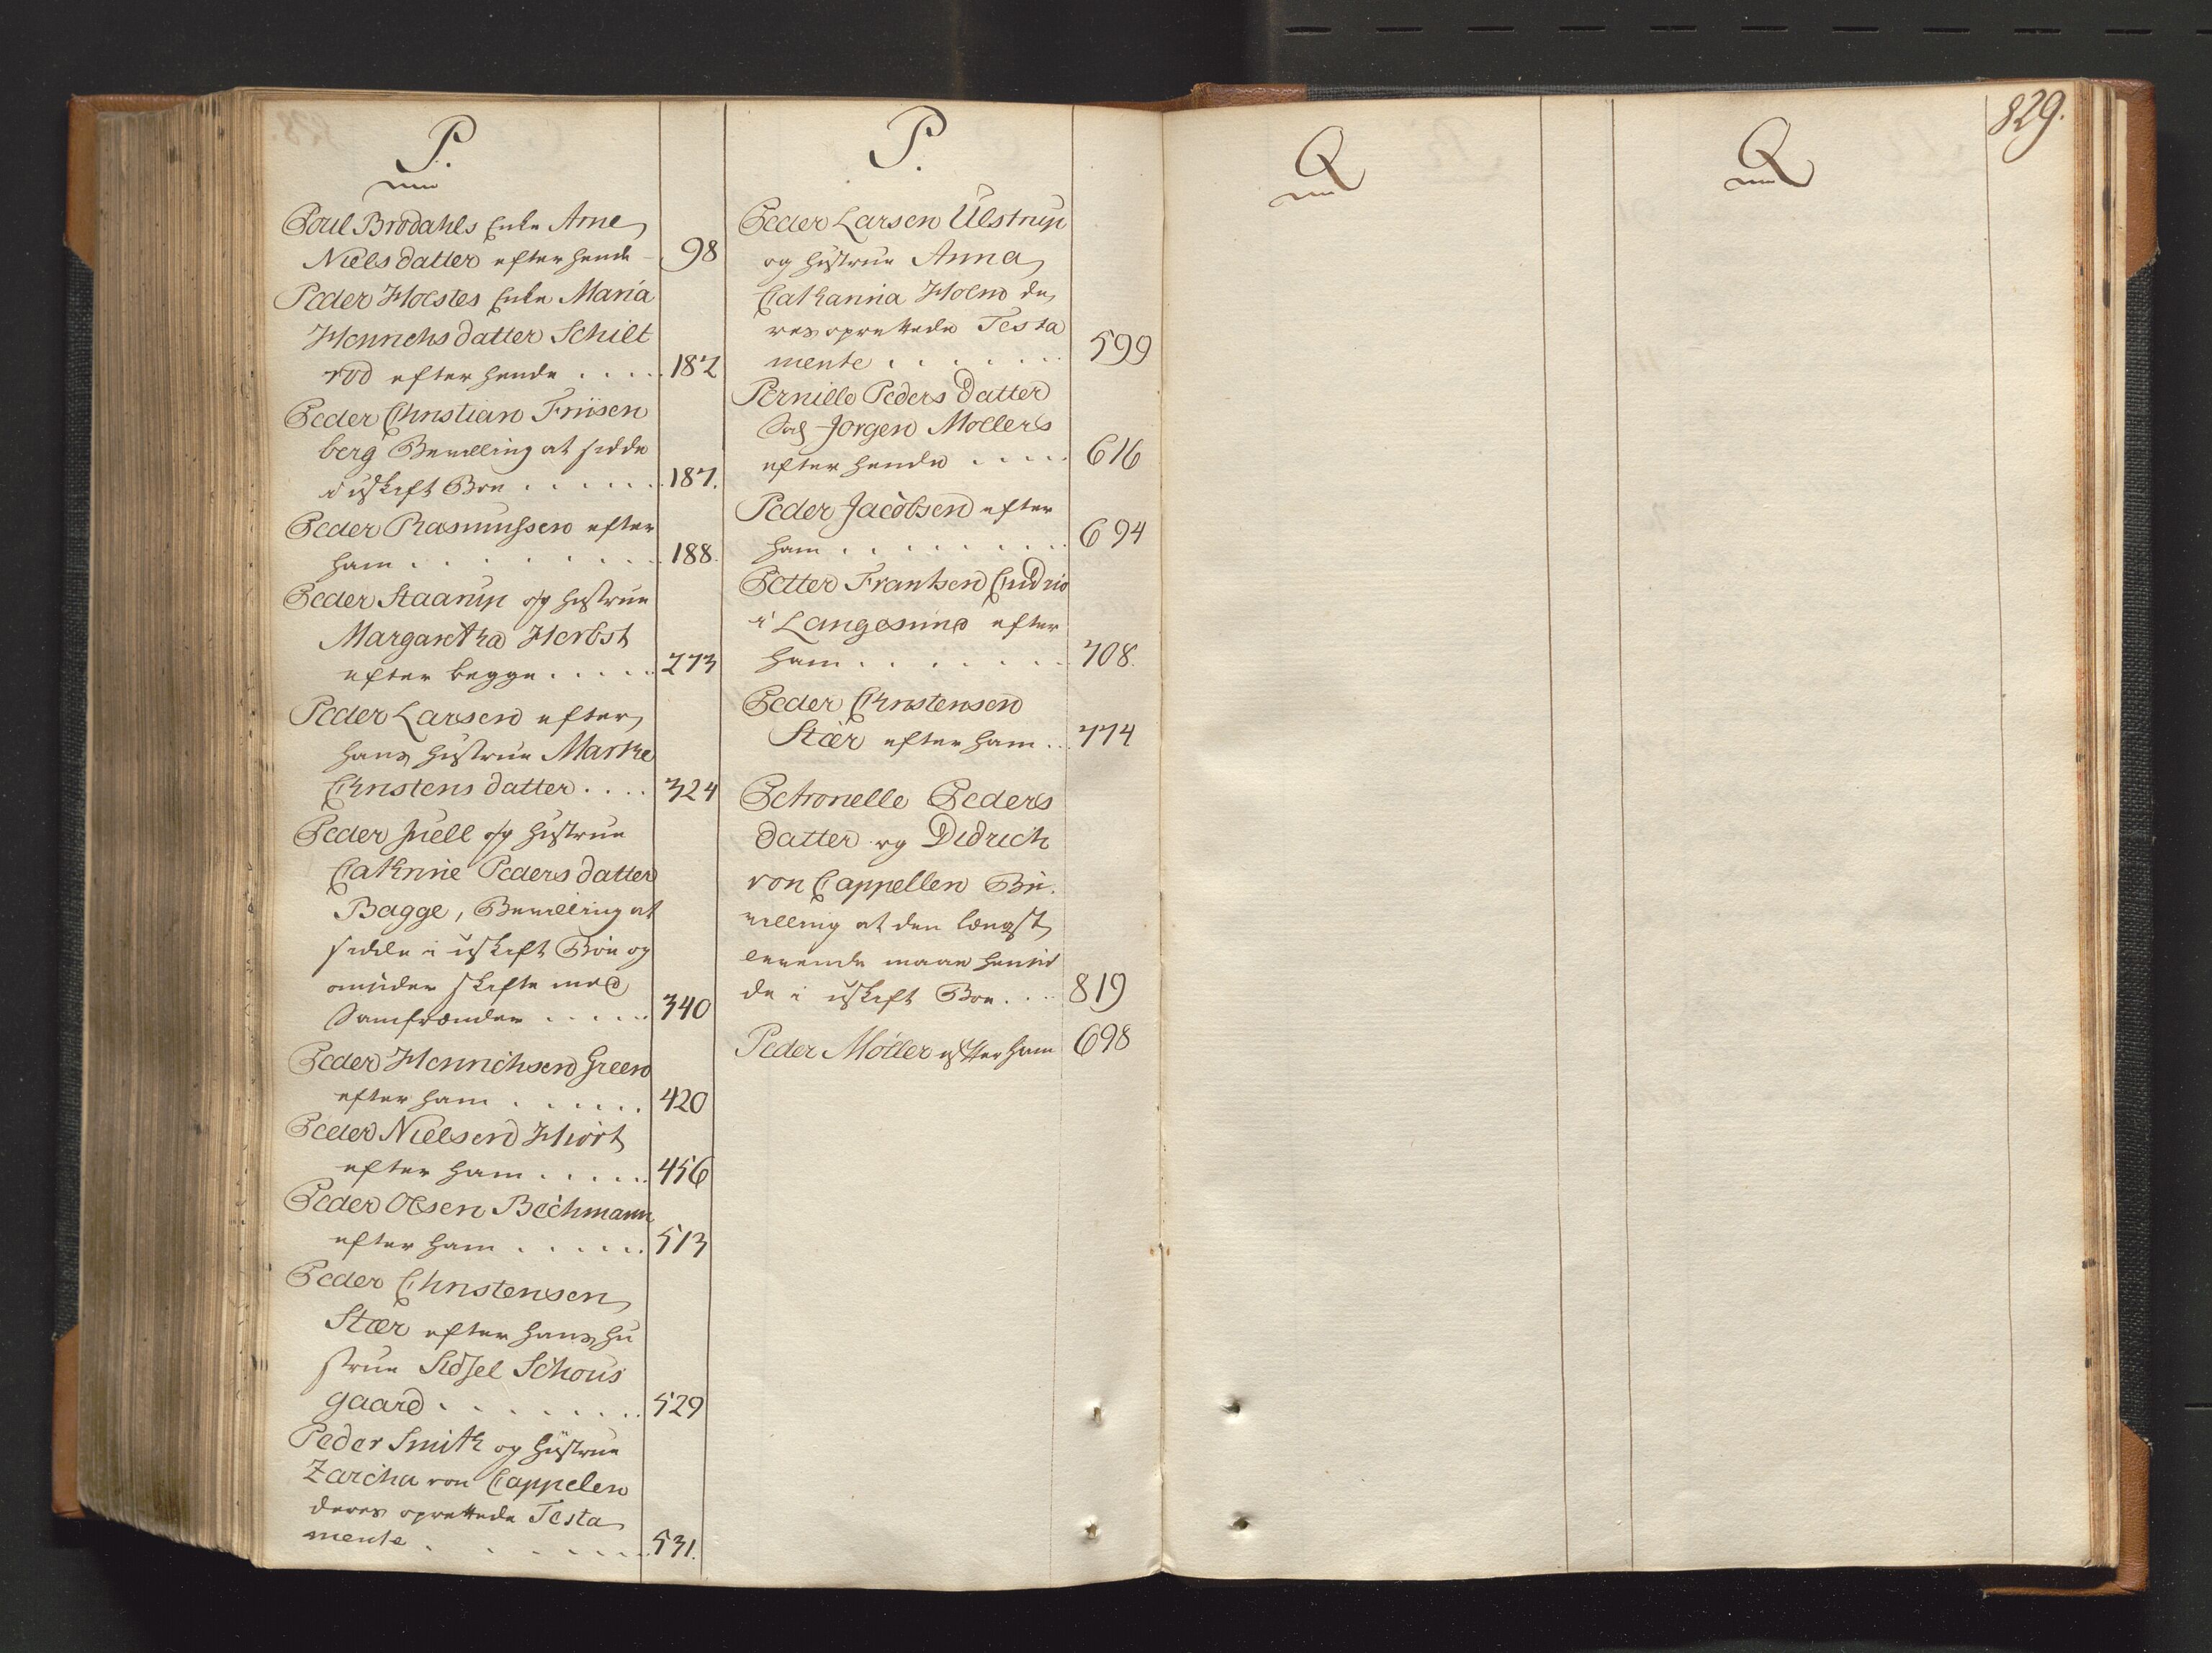 P.
Poul Brodahls Enke Arne
Niels datter efter hende - 98
Peder Holstes Enke Maria
Henrichs datter Schilt
rod efter hende . . . . 182
Peder Christian Friisen
berg Bevilling at sidde
i uskift Boe . . . . . . 187.
Peder Rasmussen efter
ham . . . . . . . 188.
Peder Staarup og hustrue
Margaretha Herbst
efter begge . . . . . 273
Peder Larsen efter
hans hustrue Marthe
Christens datter . . . . 324
Peder Juell og hustrue
Cathrine Peders datter
Bagge, Bevilling at
sidde i uskift Boe og
omsider skifte med
Samfrænder . . . . . 340
Peder Henrichsen Green
efter ham . . . . . . 420
Peder Nielsen Hiort
efter ham . . . . . 456
Peder Olsen Bechmann
efter ham . . . . . . 513
Peder Christensen
Stær efter hans hu
strue Sidsel Schous
gaard . . . . . . . . 529
Peder Smith og hustrue
Zarcha von Cappelen
deres oprettede Testa
mente . . . . . . . 531.
P.
Peder Larsen Ulstrup
og hustrue Anna
Catharina Holm de
res oprettede Testa
mente . . . . . . 599
Pernille Peders datter
Sal Jørgen Mollers
efter hende . . . . . 616
Peder Jacobsen efter
ham . . . . . . . . . 694
Petter Frantsen
i Langesund efter
ham . . . . . . . . 708.
Peder Christensen
Stær efter ham . . 774
Petronelle Peders
datter og Didrich
von Cappellen Be
villing at den længst
levende maae hensid
de i uskift Boe . . . 819
Peder Möller efter ham 698
Q
Q
829.